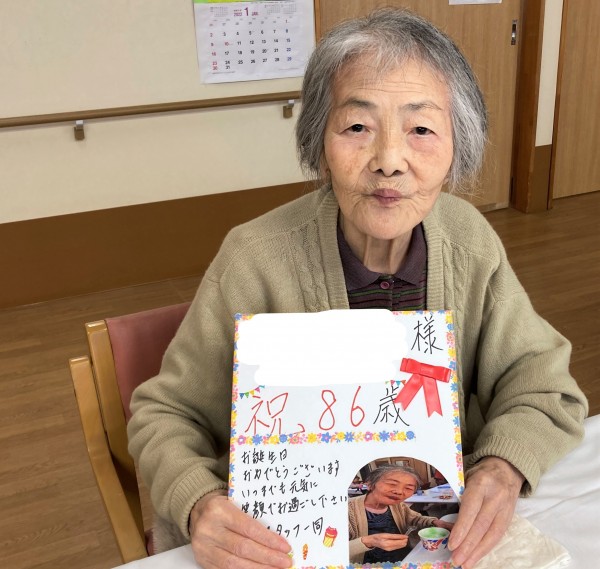 2022 1 JAN
様
祝、86歳
お誕生日
おめでとうございます
いつまでも元気に
笑顔でお過ごし下さい
スタッフ一同